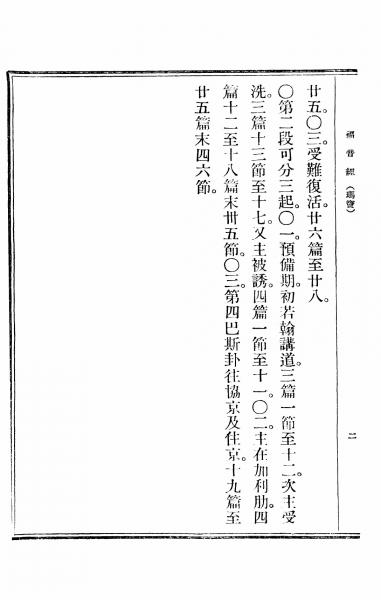 福音經（瑪竇）
二
廿五。〇三。受難復活。廿六篇至廿八。
〇第二段可分三起。〇一。預備期。初若翰講道。三篇一節至十二。次主受
洗。三篇十三節至十七。又主被誘。四篇一節至十一。〇二。主在加利肋。四
篇十二至十八篇末卅五節。〇三。第四巴斯卦往協京及住京。十九篇至
廿五篇末四六節。